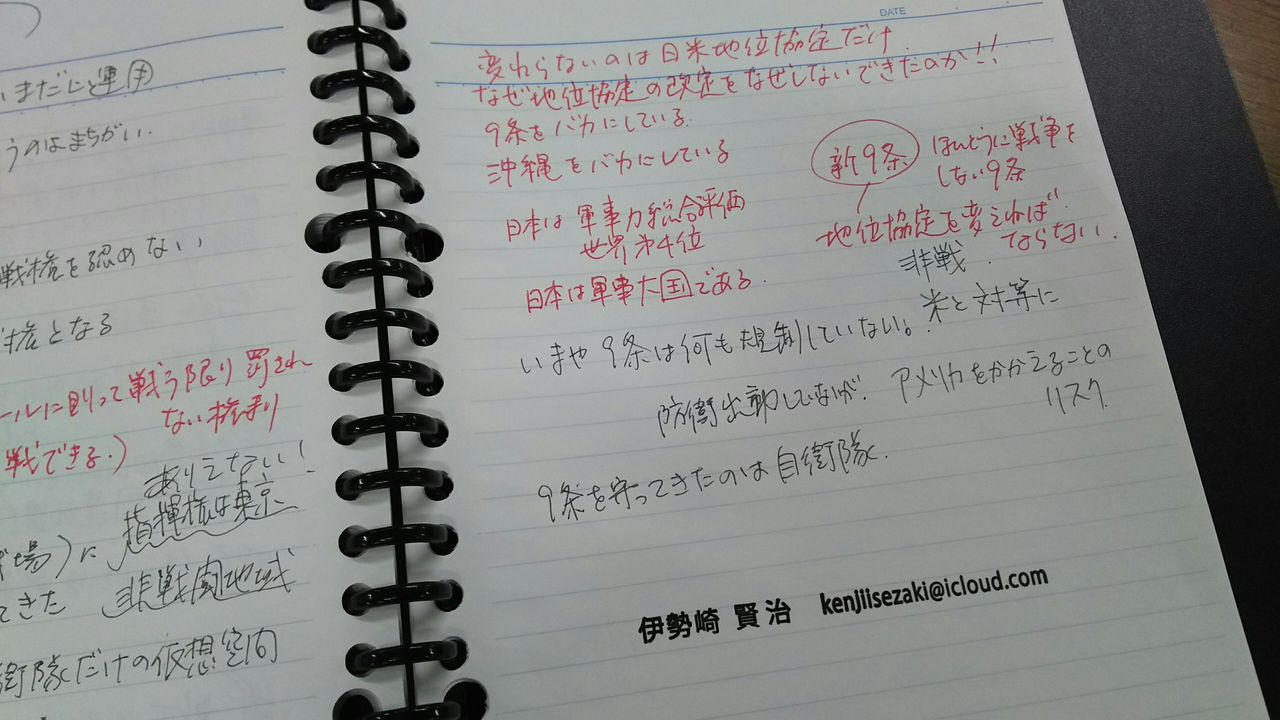 いまだにと運用
うのはまちがい.
戦権を認めない
権となる
ールに則って戦う限り罰され
ない権利
戦できる.)
ありえない!
場)に 指揮権は東京
てきた 非戦闘地域
衛隊だけの仮想空間
DATE
変わらないのは日米地位協定だけ.
なぜ地位協定の改定をなぜしないできたのか!!
9条をバカにしている.
沖縄をバカにしている
日本は軍事力総合評価
世界第4位
日本は軍事大国である.
新9条 ほんとうに戦争を
しない9条
地位協定を変えねば
ならない.
非戦.
米と対等に
いまや9条は何も規制していない。
防衛出動してないが. アメリカをかかえることの
リスク
9条を守ってきたのは自衛隊.
伊勢崎 賢治 kenjiisezaki@icloud.com